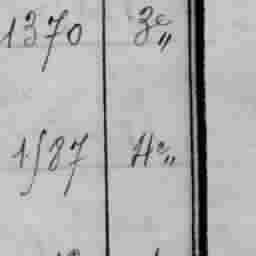 1370 3e„
1587 4e„